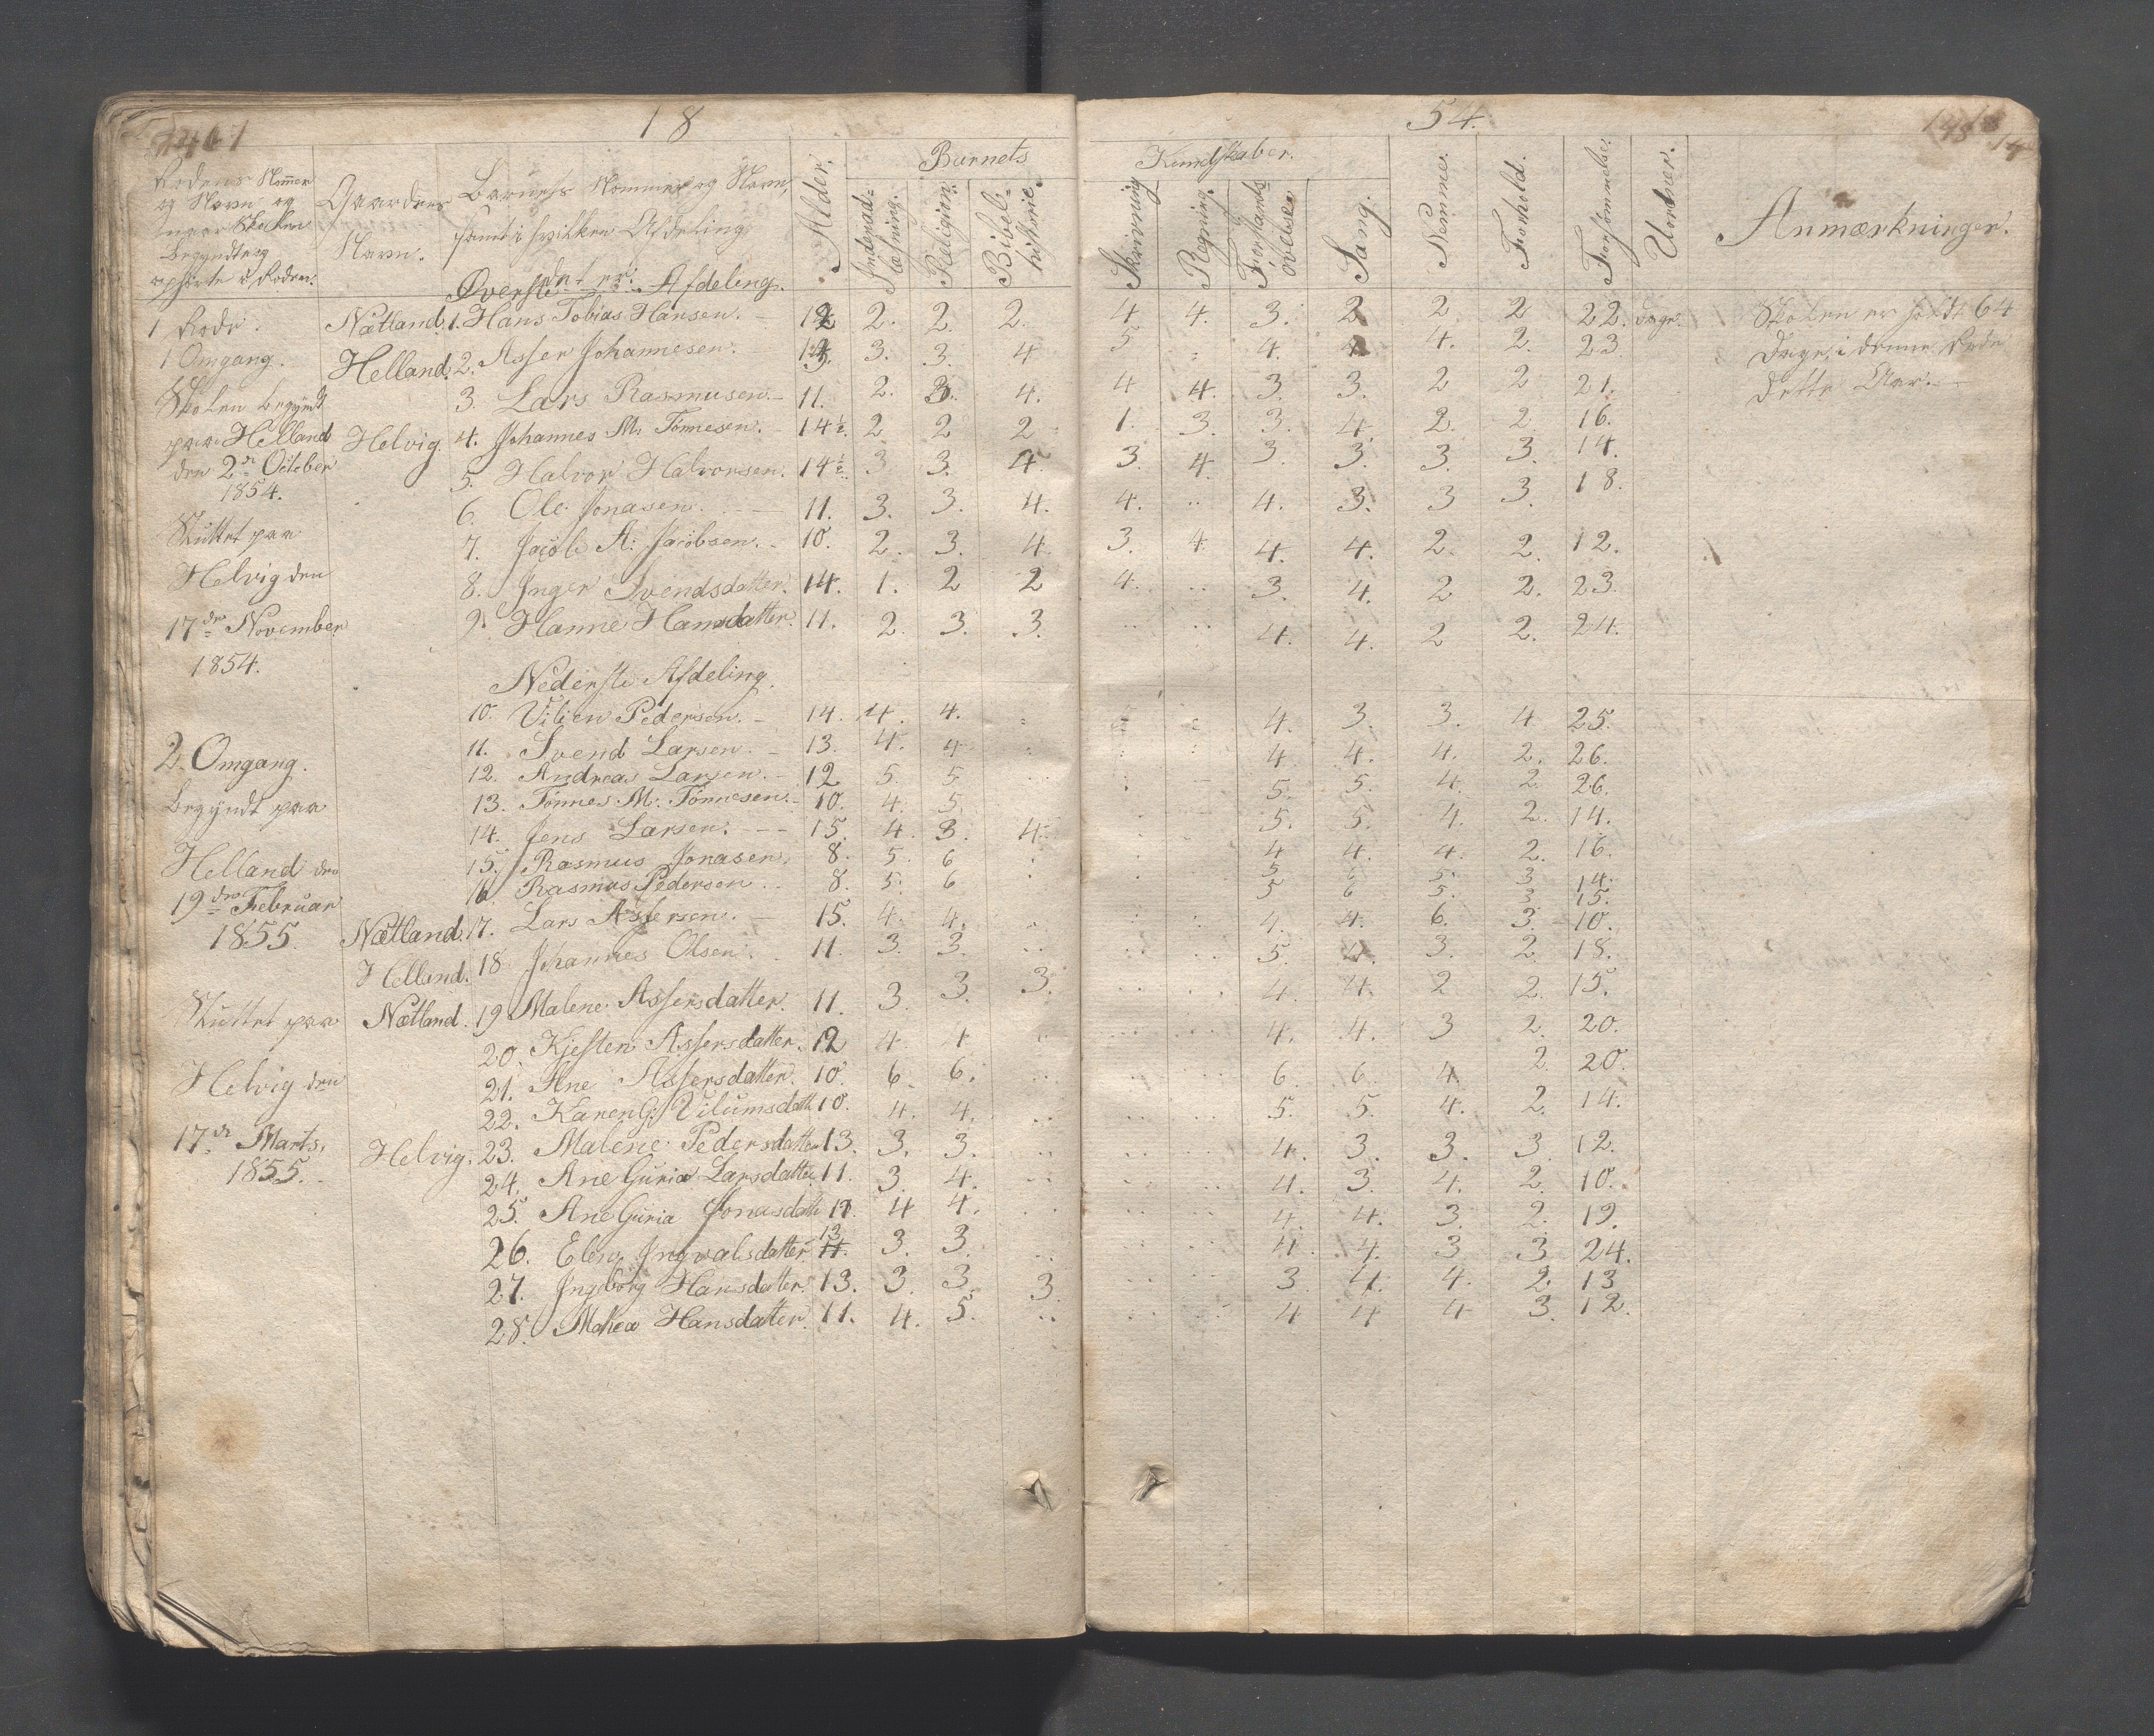 18 54.
Rodens Nommer og Navn og naar Skolen begyndte og ophørte i Roden.
Gaardens Navn.
Barnets Nommer og Navn, samt i hvilken Afdeling det er.
Alder.
Barnets Kundskaber.
Indenad-læsning. Religion. Bibel-historie. Skrivning. Regning. Forstands øvelse. Sang. Nemme. Forhold. Forsømmelse. Uorden. Anmærkninger.
Øverste Afdeling.
1 Rode. Nætland. 1. Hans Tobias Hansen. 12 2. 2. 2. 4 4. 3. 2 2. 2 22. Dage. Skolen er holdt 64
1 Omgang. Helland. 2. Asser Johannesen. 3. 3. 4 5 4. 4. 2. 23. Dage i denne Rode
Skolen begyndt 3. Lars Rasmusen. 11. 2. 3. 4. 4 4. 3. 3. 2 2 21. dette Aar.
paa Helland Helvig. 4. Johannes M. Tönnesen. 14½. 2 2 2 1. 3. 3. 4. 2. 2. 16.
den 2den October 5. Halvor Halvorsen. 14½. 3 3. 4. 3. 4. 3. 3. 3. 3. 14.
1854. 6. Ole Jonasen. 11. 3. 3. 4. 4. .. 4. 3. 3 3. 18.
Sluttet paa 7. Jacob A. Jacobsen. 10. 2. 3. 4. 3. 4. 4. 4. 2. 2. 12.
Helvig den 8. Inger Svendsdatter. 14. 1. 2 2 4. .. 3. 4. 2 2. 23.
17de November 9. Hanne Hansdatter. 11. 2. 3. 3. .. .. 4. 4. 2 2. 24.
1854.
Nederste Afdeling.
10. Vilien Pedersen. 14. 4. 4. 4. 3. 3. 4 25.
2. Omgang. 11. Svend Larsen. 13. 4. 4 4 4. 4. 2. 26.
12. Andreas Larsen. 12 5. 5 5. 5. 4. 2. 26.
Begyndt paa 13. Tönnes M. Tönnesen. 10. 4. 5. 5. 5. 4. 2. 14.
14. Jens Larsen. 15. 4. 3. 4. 4 4. 4. 2. 16.
Helland den 15. Rasmus Jonasen. 8. 5. 6 5 5. 3 14.
19de Februar 16. Rasmus Pedersen. 8. 5. 6 5 6 5. 3 15.
1855. Nætland. 17. Lars Assersen. 15. 4. 4. 4. 4. 6. 3. 10.
Helland. 18. Johannes Olsen. 11. 3. 3. .. 5. 4. 3. 2. 18.
Sluttet paa Nætland. 19. Malene Assersdatter. 11. 3. 3. 3. 4. 4. 2 2. 15.
20. Kjesten Assersdatter. 12 4. 4 4. 4. 3 2. 20.
Helvig den 21. Ane Assersdatter. 10. 6. 6. .. 6. 6. 4. 2. 20.
22. Karen G. Vilumsdatt. 10. 4. 4. .. 5. 5. 4. 2. 14.
17de Marts. Helvig. 23. Malene Pedersdatter 13. 3. 3. .. 4. 3. 3. 3. 12.
1855. 24. Ane Guria Larsdatter 11. 3. 4. .. 4. 3. 4. 2. 10.
25. Ane Guria Jonasdatt 4 4. .. 4. 4. 3. 2. 19.
26. Ingvalsdatter 13. 3. 3. .. 4. 4. 3. 3 24.
27. Ingeborg Hansdatter. 13. 3. 3. 3. 3 4. 4. 2. 13
28. Hansdatter. 11. 4. 5. .. 4 4 4 3. 12.